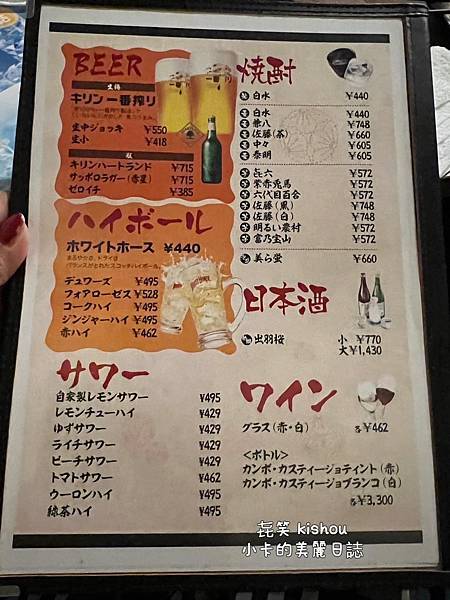 BEER
生樽
キリン一番搾り
生中ジョッキ ¥550
生小 ¥418
瓶
キリンハートランド ¥715
サッポロラガー(赤星) ¥715
ゼロイチ ¥385
ハイボール
ホワイトホース ¥440
まろやかさ、ドライさ
バランスがとれたスコッチハイボール。
デュワーズ ¥495
フォアローゼズ ¥528
コークハイ ¥495
ジンジャーハイ ¥495
赤ハイ ¥462
サワー
自家製レモンサワー ¥495
レモンチューハイ ¥429
ゆずサワー ¥429
ライチサワー ¥429
ピーチサワー ¥429
トマトサワー ¥462
ウーロンハイ ¥495
緑茶ハイ ¥495
焼酎
白水 ¥440
白水 ¥440
兼八 ¥748
佐藤(茶) ¥660
中々 ¥605
泰明 ¥605
㐂六 ¥572
紫赤兎馬 ¥572
六代目百合 ¥572
佐藤(黒) ¥748
佐藤(白) ¥748
明るい農村 ¥572
富乃宝山 ¥572
美ら蛍 ¥660
日本酒
出羽桜 小 ¥770
大 ¥1,430
ワイン
グラス(赤・白) 各¥462
<ボトル>
カンポ・カスティージョティント(赤)
カンポ・カスティージョブランコ(白)
各¥3,300
㐂笑 kishou
小卡的美麗日誌